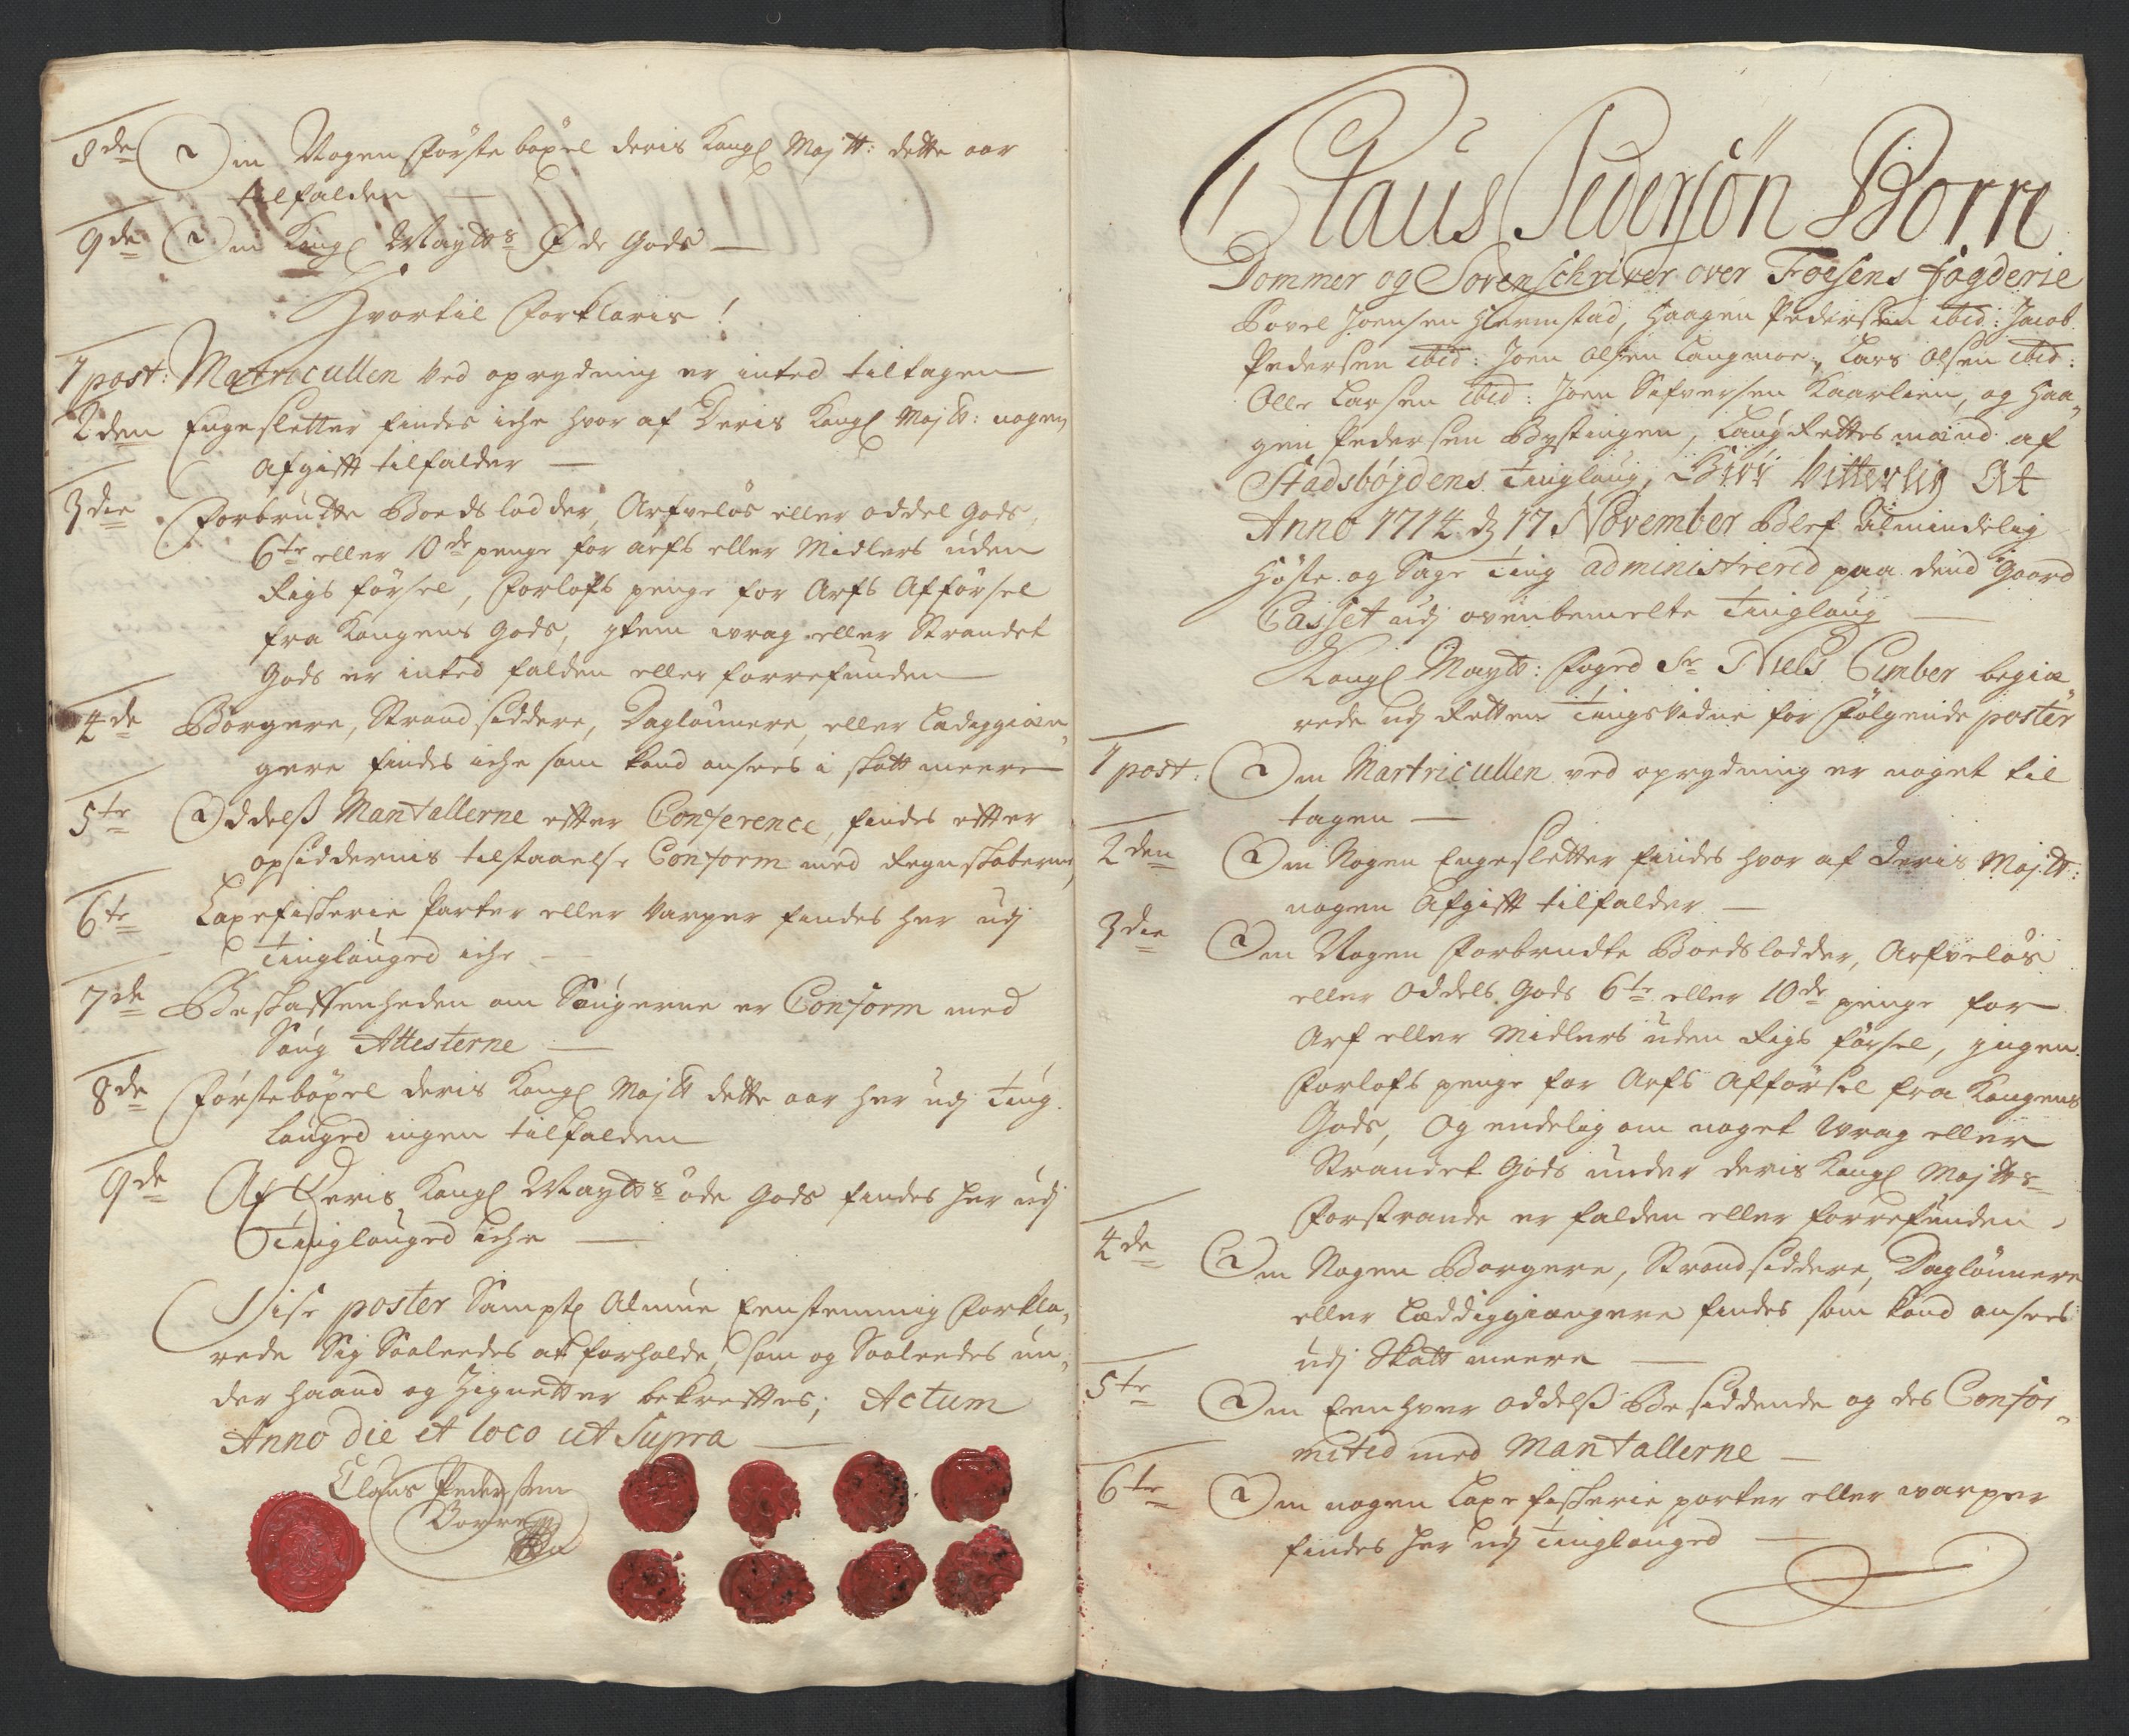 8de Om Nogen Förste böxel deris Kongl Maj tt: dette aar
tilfalden —
9de Om Kongl Maytts Öde Gods —
Hvortil Forklaris !
1 post: Matricullen ved oprydning er inted tiltagen —
2den Engesletter findes iche hvor af Deris Kongl Maj tt: nogen
afgifft tilfalder —
3die Forbrudte Boedslodder, Arfveløs eller oddel Gods,
6te eller 10de penge for arfs eller Midlers uden
Rigs førsel, Forlofs penge for Arfs Afførsel
fra Kongens Gods, ifem wrag eller Strandet
Gods er inted falden eller forrefunden —
4de Borgere, Strandsiddere, Daglønnere, eller Ledigjæn„
gere findes iche som kand ansees i skatt meere
5te Oddelss Mantallerne efter Conference, findes efter
opsiddernis tilstaaelse Conform med Regnskaberne
6te Laxefiskerie Parter eller Varper findes her udj
Tinglauged iche —
7de Beskaffenheden om Saugerne er Conform med
Saug Attesterne —
8de Førstebøxel deris Kongl Maj tt dette aar her udj Ting
lauged ingen tilfalden
9de Af Deris Kongl Maytts øde Gods findes her udj
Tinglauged iche —
Disse poster Samptl Almue Eenstemmig Forkla„
rede Sig Saaleedes at forholde, som og Saaleedes un„
der haand og Zignetter bekrefftes; Actum
Anno die et loco ut Supra —
Claus Pedersøn
Borre
Claus Pedersøn Borre
Dommer og Sorenschriver over Foesens fogderie
Povel Joensen Hermstad, Haagen Pedersen ibid: Jacob
Pedersen ibid: Joen Olsen Langmoe, Lars Olsen ibid:
Olle Larsen ibid: Joen Sifversen Kaarlien, og Haa„
gen Pedersen Bystingen, Laug Rettes mænd af
Stadsbøjdens Tinglaug, Giör Vitterlig At
Anno 1714 d 17 November Blef Almindelig
Høste og Sage Ting administrered paa dend Gaard
Casset udj ovenbemelte Tinglaug —
Kongl Maytt: Foged Sr Niels Cimber begiæ
rede udj Retten Tings Vidne for Følgende poster
1 post: Om Martricullen ved oprydning er noget til
tagen —
2den Om Nogen Engesletter findes hvor af Deris Maj tt:
nogen Afgifft tilfalder —
3die Om Nogen Forbrudte Boedslodder, Arfveløs
eller Oddels Gods 6te eller 10de penge for
Arf eller Midlers uden Rigs førsel, ingen
Forlofs penge for Arfs Afførsel fra Kongens
Gods, Og endelig om noget Wrag eller
Strandet Gods under deris Kongl Maj tts
Forstrande er falden eller forrefunden,
4de Om Nogen Borgere, Strandsiddere, Daglønnere
eller Læddiggiængere findes som kand ansees
udj Skatt meere —
5te Om Eenhver Oddelss Besiddende og des Confor„
mited med Mantallerne —
6te Om nogen Laxe fiskerie parter eller warper
findes her udj Tinglauged —